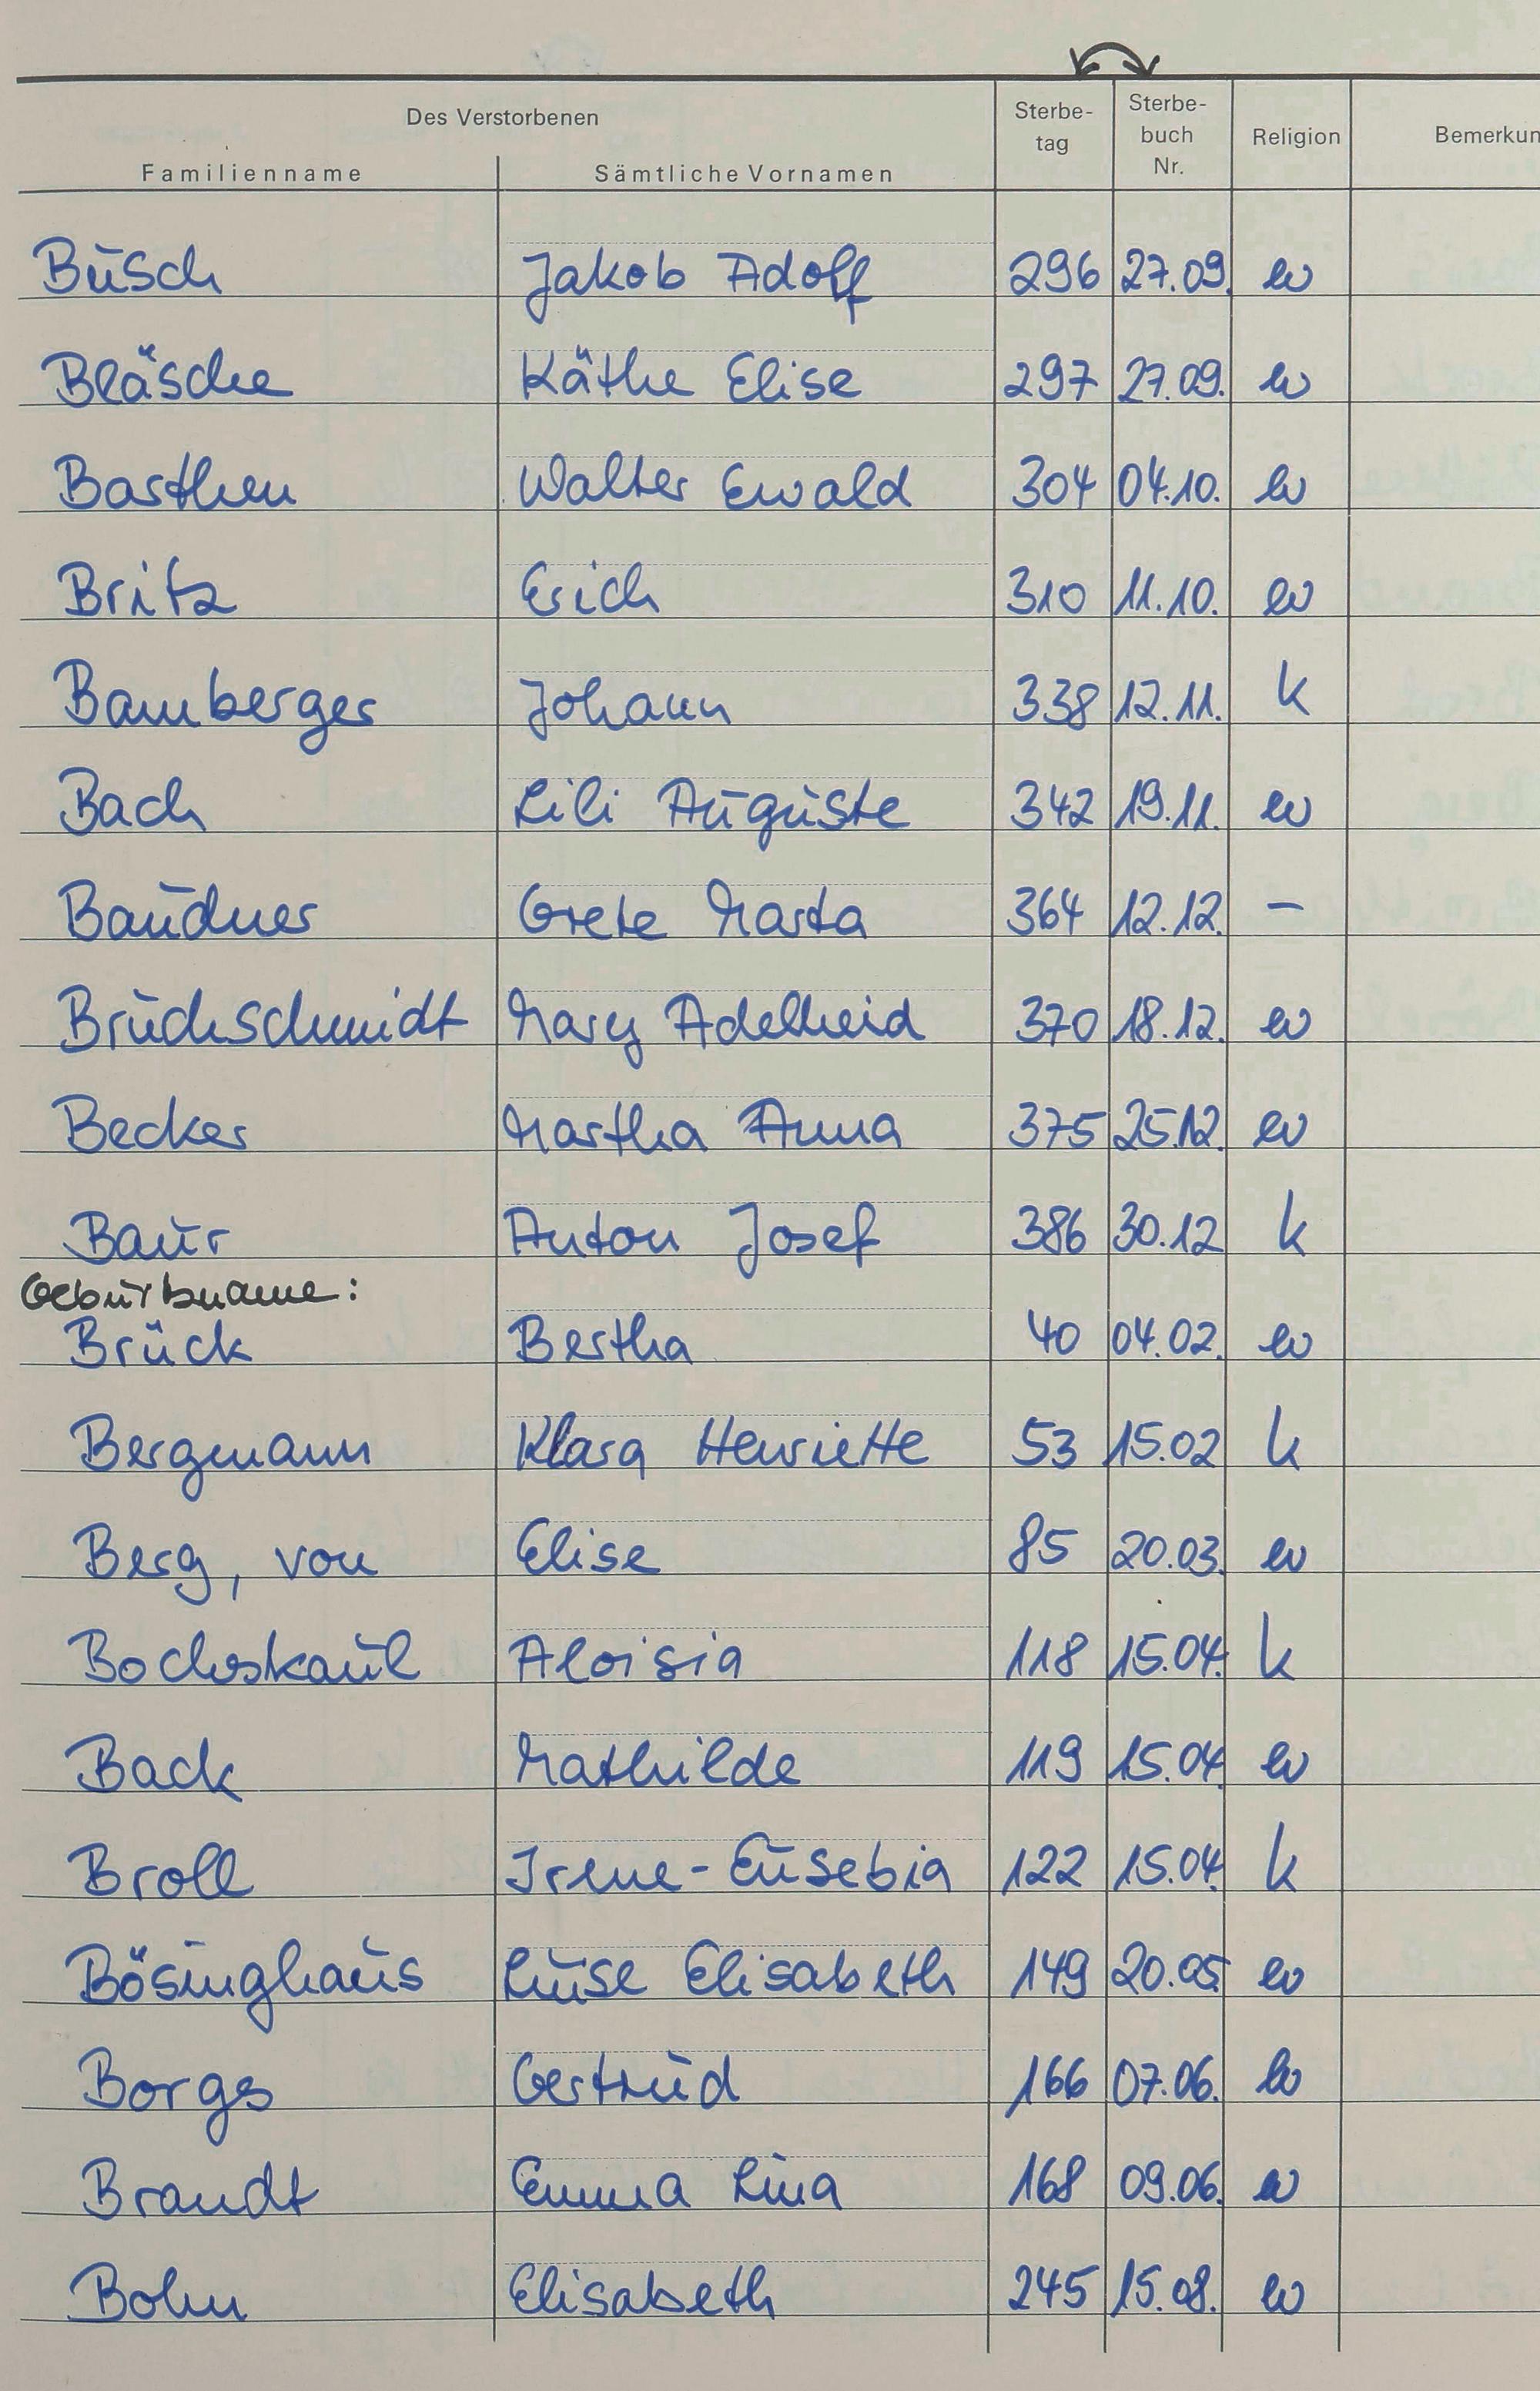 Des Verstorbenen
Familienname Sämtliche Vornamen Sterbe-tag Sterbe-buch Nr. Religion Bemerkun
Busch Jakob Adolf 296 27.09. ev
Bläsche Käthe Elise 297 27.09. ev
Barthen Walter Ewald 304 04.10. ev
Britz Erich 310 11.10. ev
Bamberger Johann 338 12.11. k
Bach Lili Auguste 342 19.11. ev
Baudner Grete Marta 364 12.12. –
Bruchschmidt Mary Adelheid 370 18.12. ev
Becker Martha Anna 375 25.12. ev
Baur Anton Josef 386 30.12 k
Geburtsname:
Brück Bertha 40 04.02. ev
Bergmann Klara Henriette 53 15.02 k
Berg, von Elise 85 20.03. ev
Bochskaul Aloisia 118 15.04. k
Back Mathilde 119 15.04 ev
Broll Irene-Eusebia 122 15.04 k
Bösinghaus Luise Elisabeth 149 20.05 ev
Borgs Gertrud 166 07.06. ev
Brandt Emma Lina 168 09.06. ev
Bohn Elisabeth 245 15.08. ev